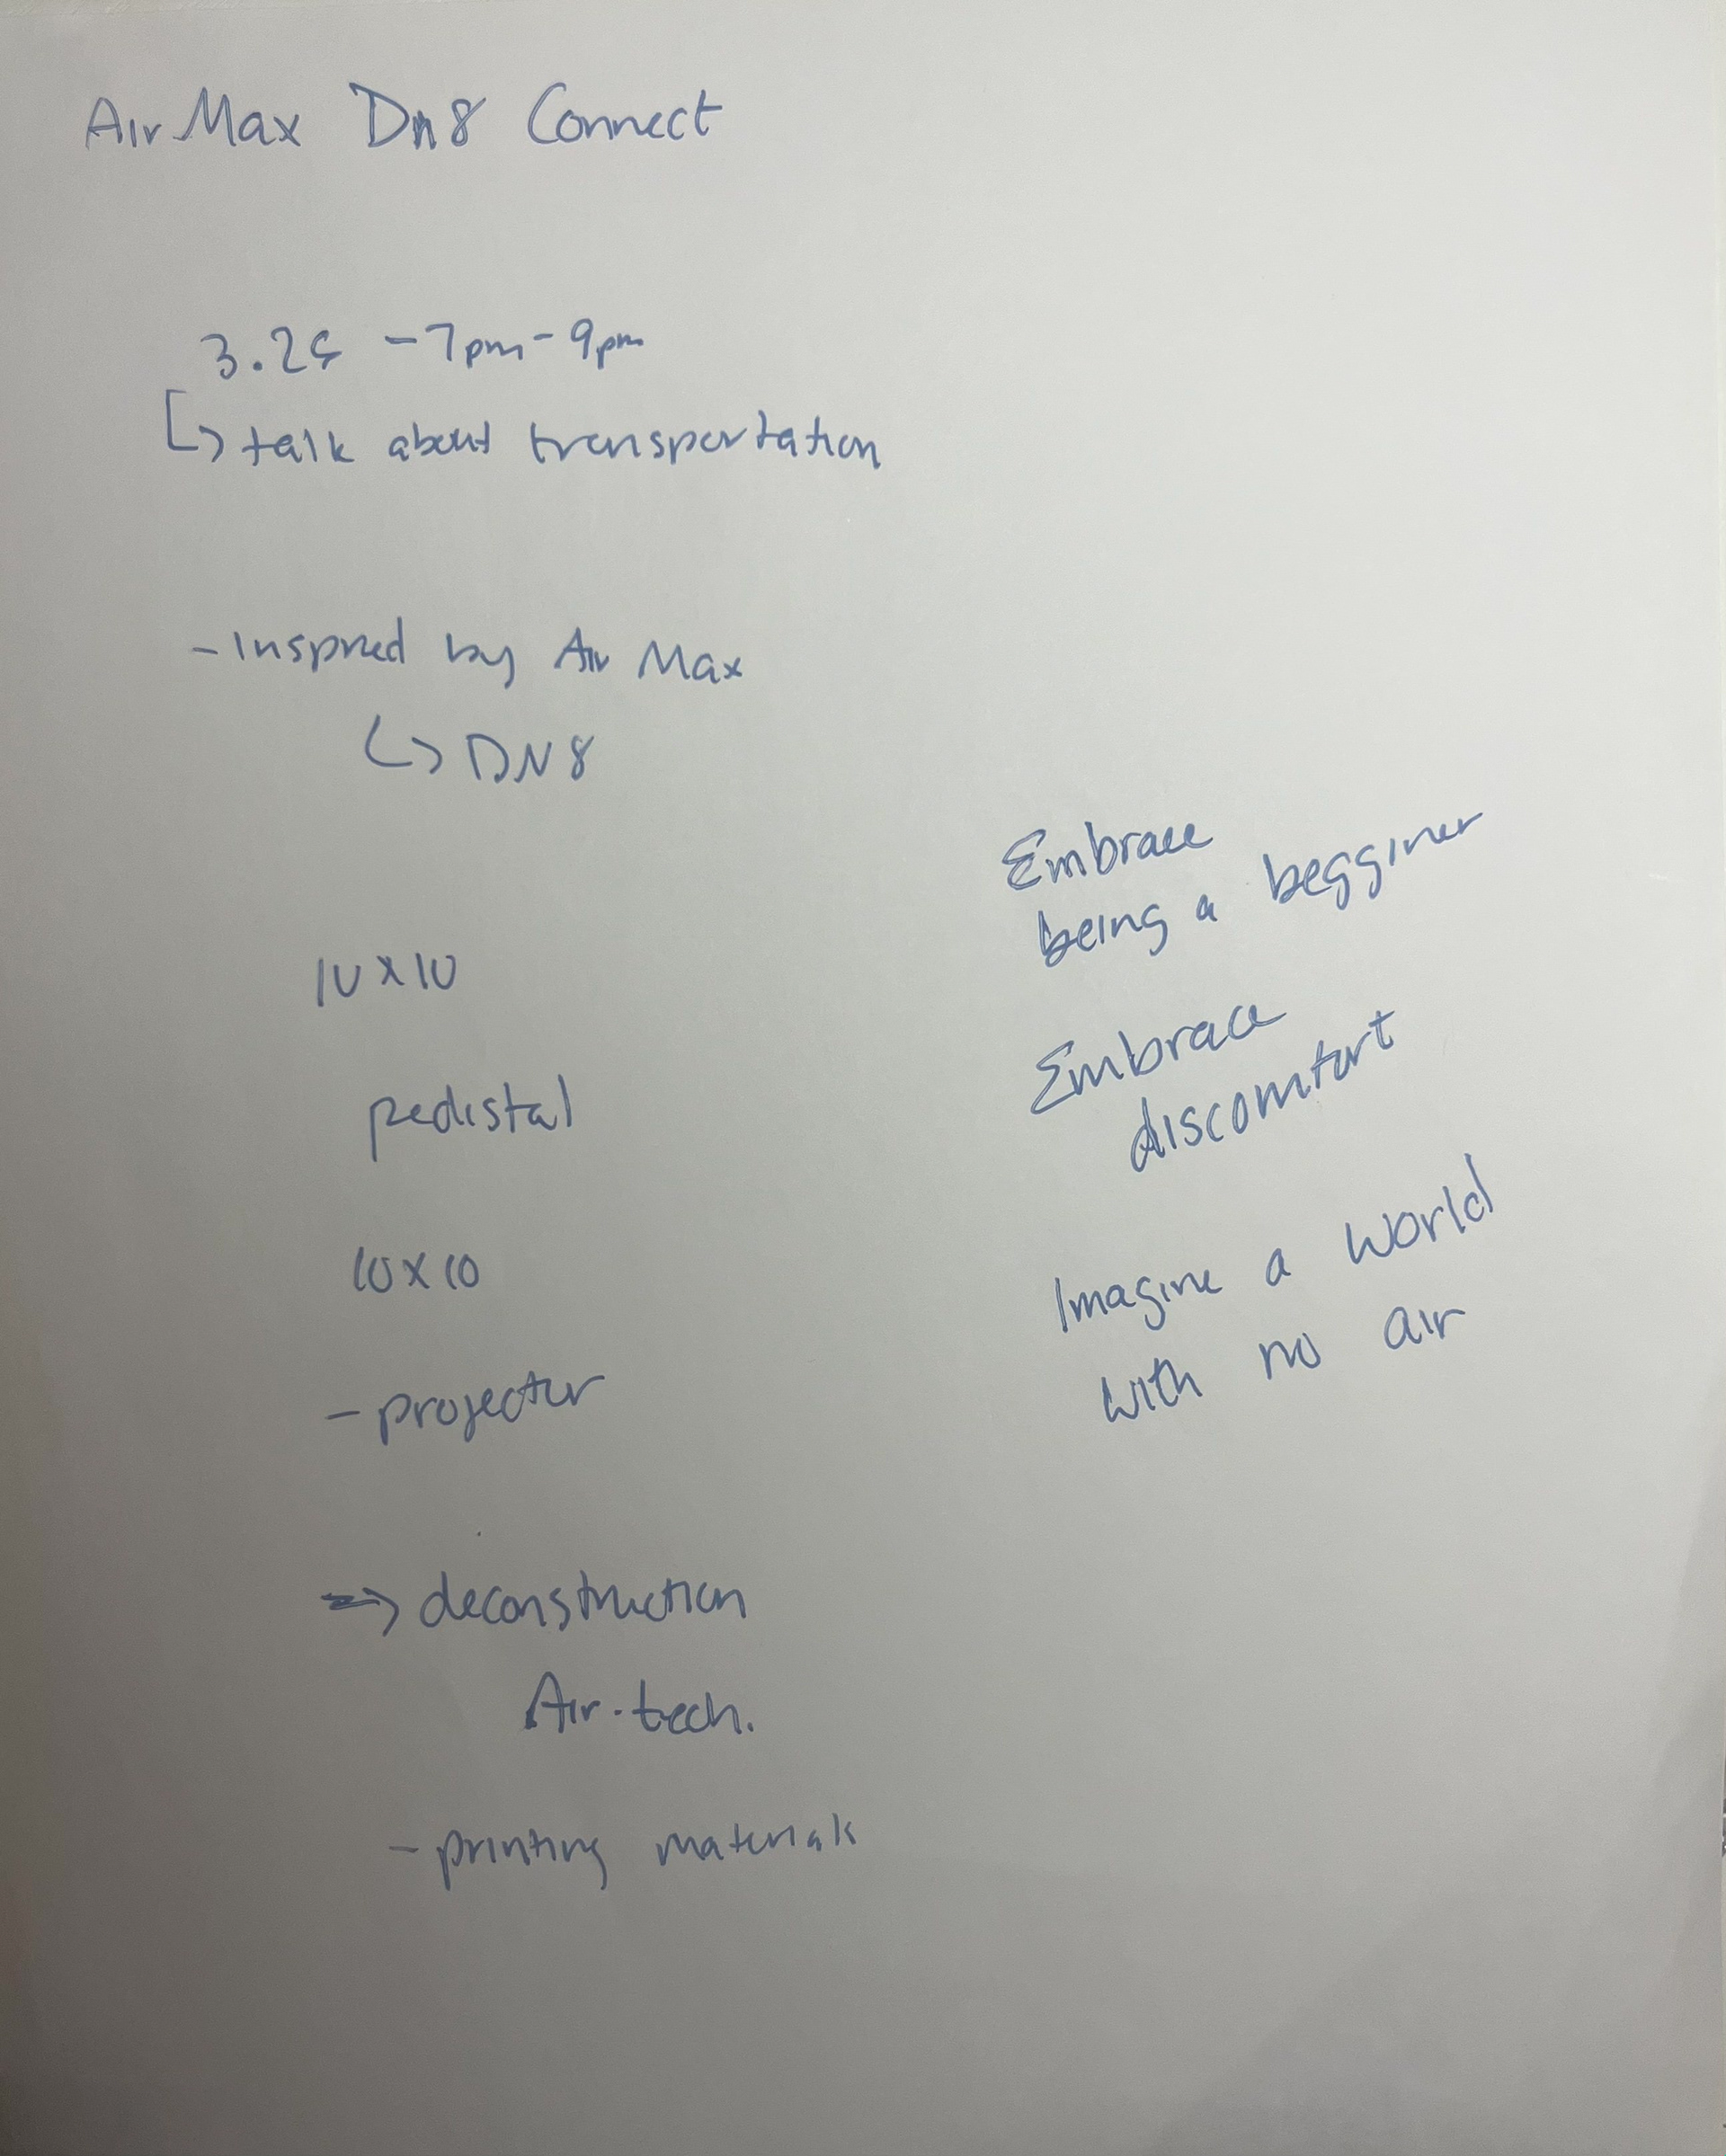 Air Max Dn8 Connect
3.25 - 7pm - 9pm
↳ talk about transportation
- Inspired by Air Max
↳ DN8
10 x 10
pedistal
10 x 10
- projector
⇒ deconstruction
Air-tech.
- printing materials
Embrace
being a begginer
Embrace
discomfort
Imagine a world
with no air